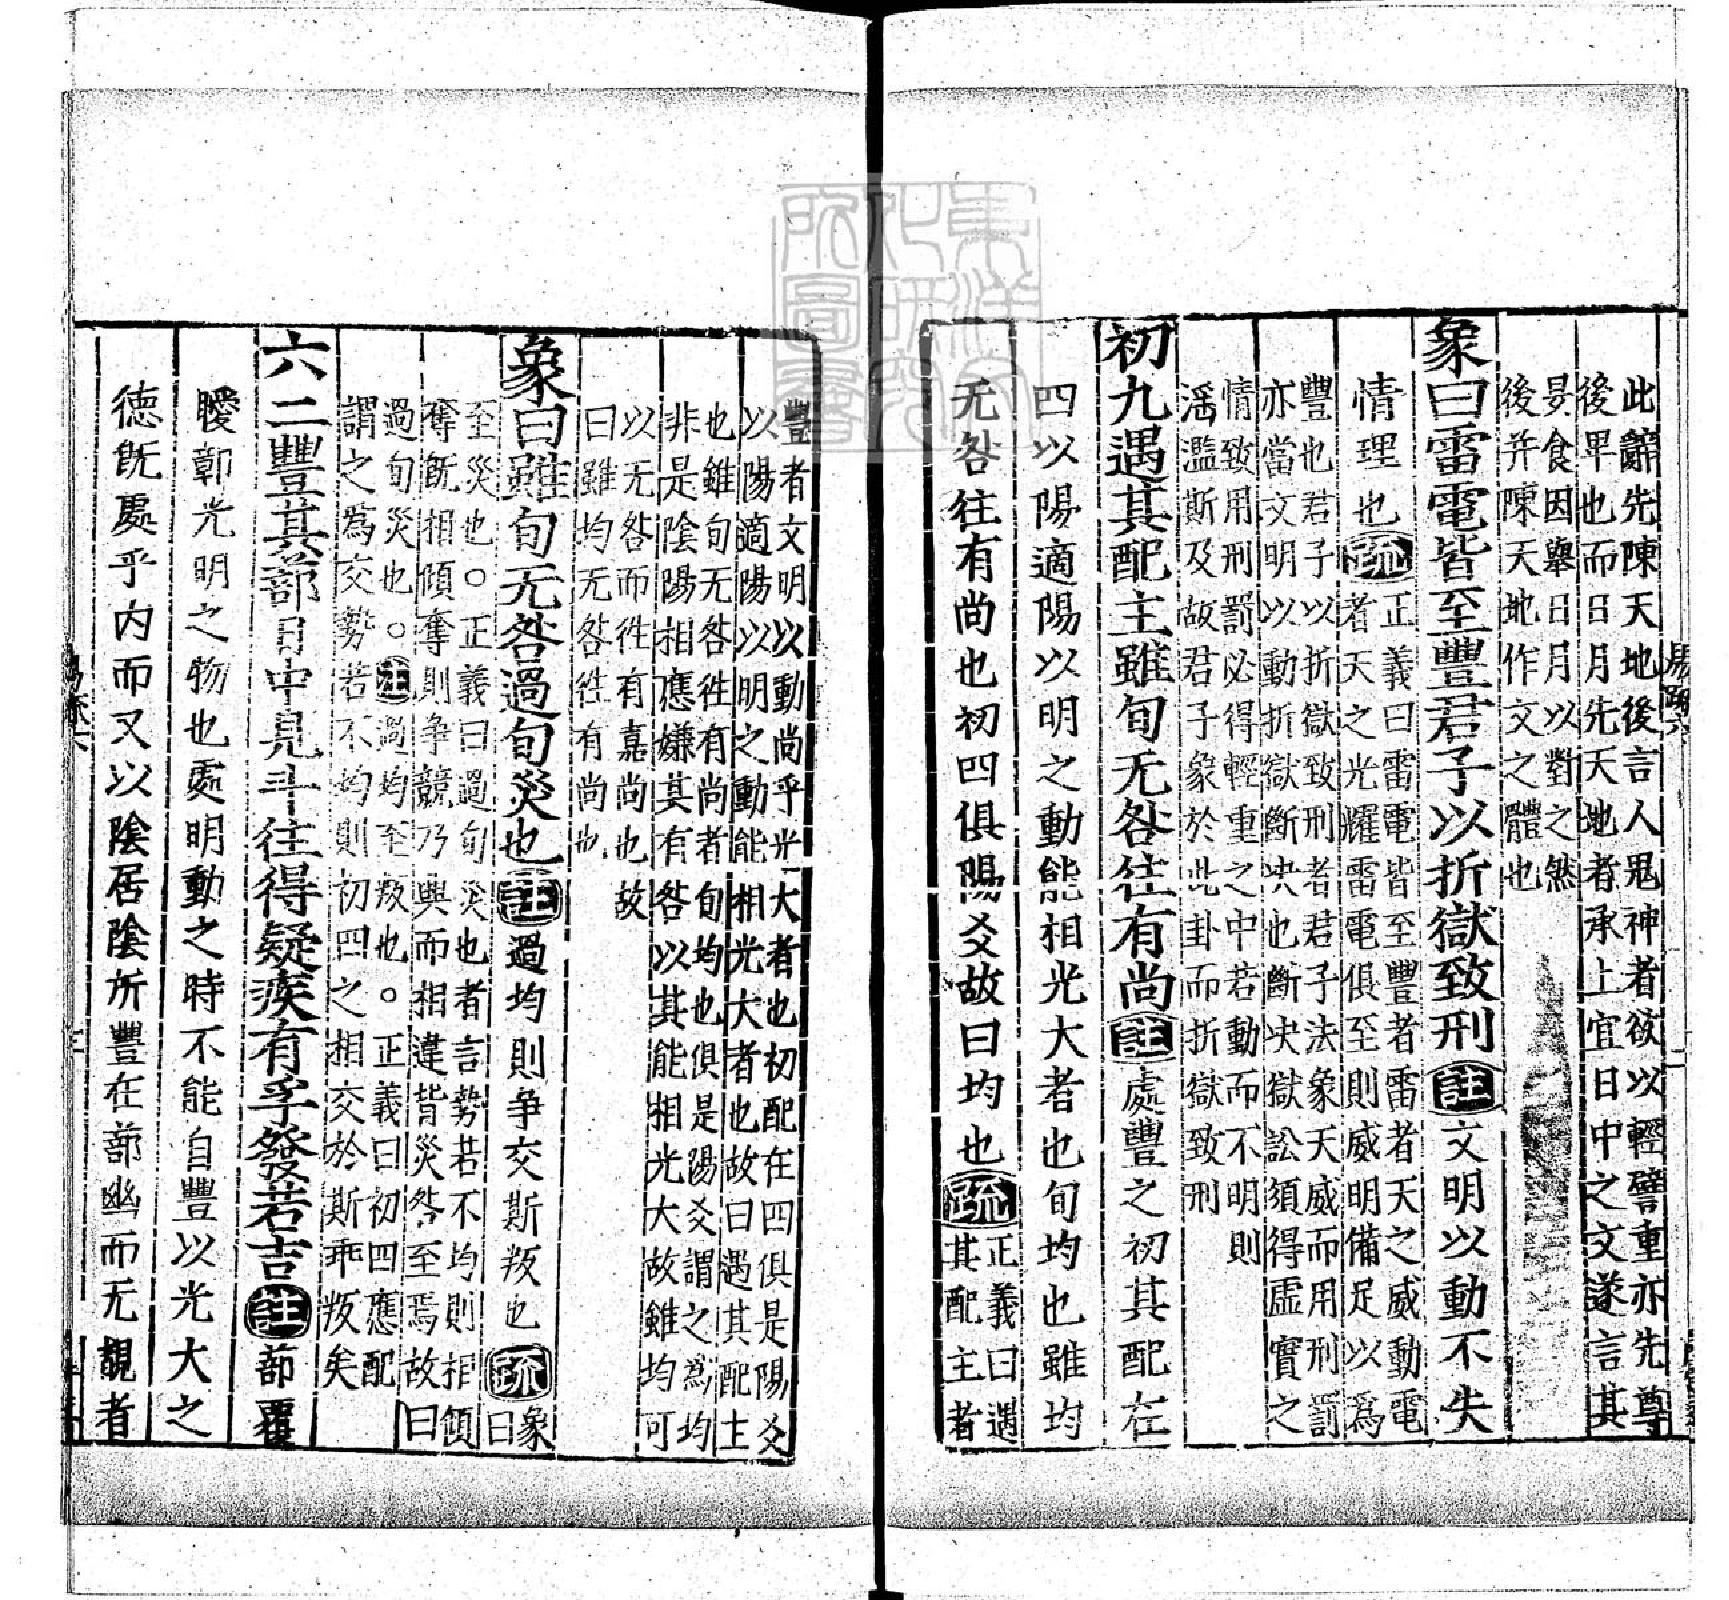 此辭先陳天地後言人鬼神者欲以輕譬重亦先尊
後卑也而日月先天地者承上宜日中之文遂言其
昃食因舉日月以對之然
後并陳天地作文之體也
象曰雷電皆至豐君子以折獄致刑註文明以動不失
情理也疏正義曰雷電皆至豐者雷者天之威動電
者天之光耀雷電俱至則威明備足以爲
豐也君子以折獄致刑者君子法象天威而用刑罰
亦當文明以動折獄斷决也斷决獄訟須得虛實之
情致用刑罰必得輕重之中若動而不明則
淫濫斯及故君子象於此卦而折獄致刑
初九遇其配主雖旬无咎往有尚註處豐之初其配在
四以陽適陽以明之動能相光大者也旬均也雖均
无咎往有尚也初四俱陽爻故曰均也疏正義曰遇
其配主者
豐者文明以動尚乎光大者也初配在四俱是陽爻
以陽適陽以明之動能相光大者也故曰遇其配主
也雖旬无咎往有尚者旬均也俱是陽爻謂之爲均
非是陰陽相應嫌其有咎以其能相光大故雖均可
以无咎而往有嘉尚也故
曰雖均无咎往有尚也
象曰雖旬无咎過旬災也註過均則爭交斯叛也疏象
曰
至災也。正義曰過旬災也者言勢若不均則相傾
奪旣相傾奪則爭競乃興而相違背災咎至焉故曰
過旬災也。註過均至叛也。正義曰初四應配
謂之爲交勢若不均則初四之相交於斯乖叛矣
六二豐其蔀日中見斗往得疑疾有孚發若吉註蔀覆
曖鄣光明之物也處明動之時不能自豐以光大之
德旣處乎内而又以陰居陰所豐在蔀幽而无覩者